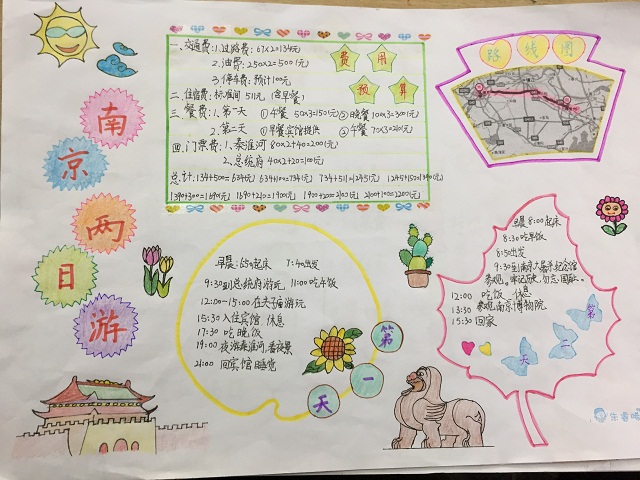 南京两日游
费用预算
一、交通费:1.过路费:67×2=134元
2.油费:250×2=500(元)
3.停车费:预计100元
二.住宿费:标准间 511元 (含早餐)
三.餐费:1.第一天 ①午餐 50×3=150(元)②晚餐 100×3=300(元)
2.第二天 ①早餐宾馆提供 ②午餐 70×3=210(元)
四.门票费:1.秦淮河 80×2+40=200(元)
2.总统府 40×2+20=100(元)
总计:134+500=634(元) 634+100=734(元) 734+511=1245(元)
1690+210=1900(元) 1900+200=2100(元) 2100+100=2200(元)
路线图
第一天
7:40出发
9:30到总统府游玩 11:00吃午饭
12:00-15:00在夫子庙游玩
15:30入住宾馆.休息
17:30 吃晚饭
19:00 夜游秦淮河,看夜景
21:00 回宾馆睡觉
第二天
早晨8:00起床
8:30吃早饭
8:50出发
9:30到南京大屠杀纪念馆
参观。牢记历史,勿忘国耻。
12:00 吃饭 休息
13:30 参观南京博物院
15:30 回家